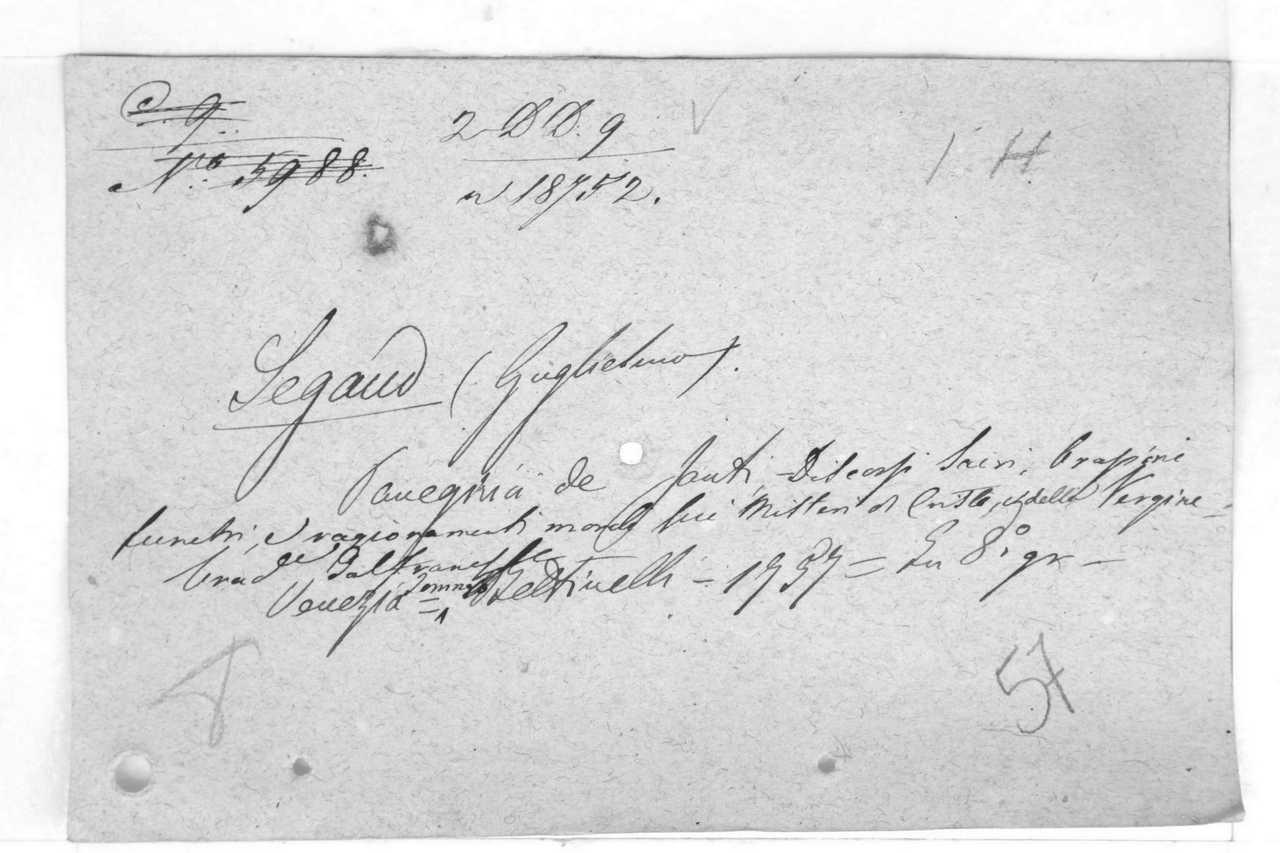 D. 9
N.ro 5988.
2 D D. 9
n 18752.
1. H
Segaud (Guglielmo).
Panegirici de Santi, Discorsi Sacri, Orazioni
funebri, e ragionamenti morali sui Misteri di Cristo, e della Vergine
trad. dal francese
Venezia = Domenico Bettinelli = 1757 = In 8° gr =
57